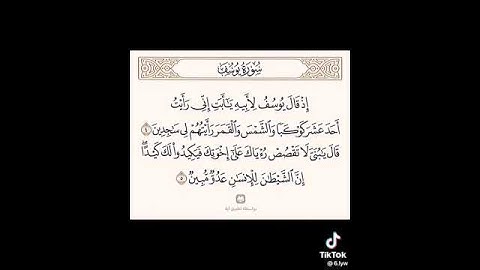 سُورَةُ يُوسُفَ
إِذْ قَالَ يُوسُفُ لِأَبِيهِ يَٰٓأَبَتِ إِنِّي رَأَيْتُ
أَحَدَ عَشَرَ كَوْكَبًا وَٱلشَّمْسَ وَٱلْقَمَرَ رَأَيْتُهُمْ لِي سَٰجِدِينَ ٤
قَالَ يَٰبُنَيَّ لَا تَقْصُصْ رُءْيَاكَ عَلَىٰٓ إِخْوَتِكَ فَيَكِيدُواْ لَكَ كَيْدًا
إِنَّ ٱلشَّيْطَٰنَ لِلْإِنسَٰنِ عَدُوٌّ مُّبِينٌ ٥
بواسطة تطبيق آية
TikTok
@ 6.lyw